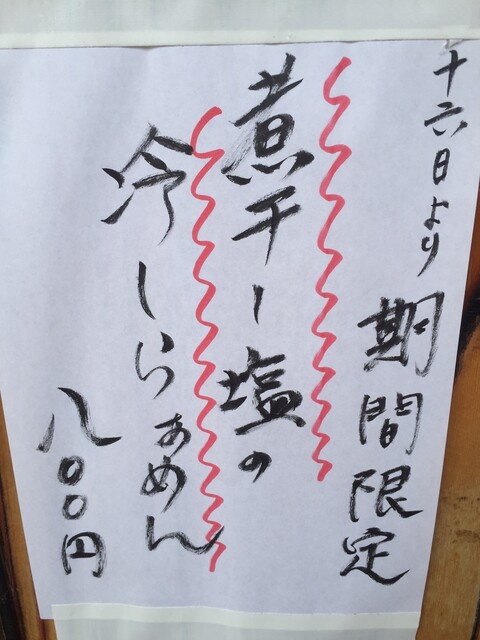 十六日より 期間限定
煮干し塩の
冷しらぁめん
八〇〇円